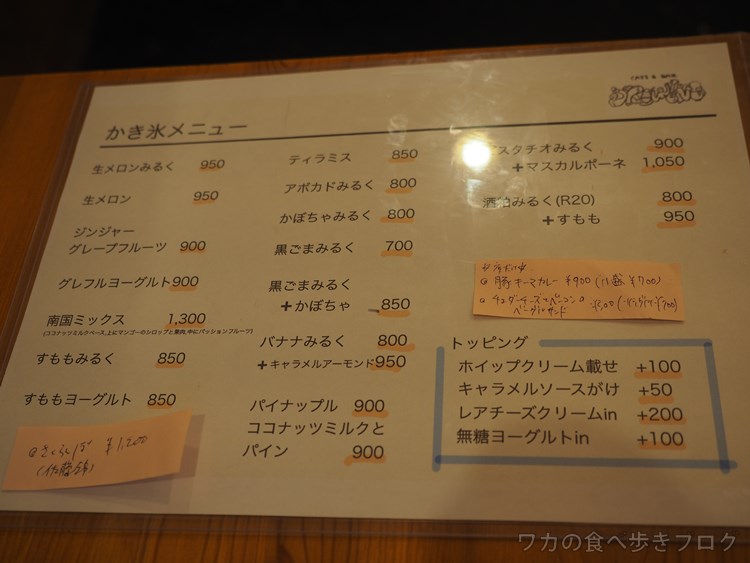 CAFE & BAR
かき氷メニュー
生メロンみるく 950
生メロン 950
ジンジャー
グレープフルーツ 900
グレフルヨーグルト900
南国ミックス 1,300
(ココナッツミルクベース,上にマンゴーのシロップと果肉,中にパッションフルーツ)
すももみるく 850
すももヨーグルト 850
さくらんぼ ¥1,200
(佐藤錦)
ティラミス 850
アボカドみるく 800
かぼちゃみるく 800
黒ごまみるく 700
黒ごまみるく
+かぼちゃ 850
バナナみるく 800
+キャラメルアーモンド950
パイナップル 900
ココナッツミルクと
パイン 900
スタチオみるく 900
+マスカルポーネ 1,050
酒粕みるく(R20) 800
+すもも 950
豚キーマカレー ¥900
チェダーチーズ ベーコン
ベーグルサンド
トッピング
ホイップクリーム載せ +100
キャラメルソースがけ +50
レアチーズクリームin +200
無糖ヨーグルトin +100
ワカの食べ歩きブログ